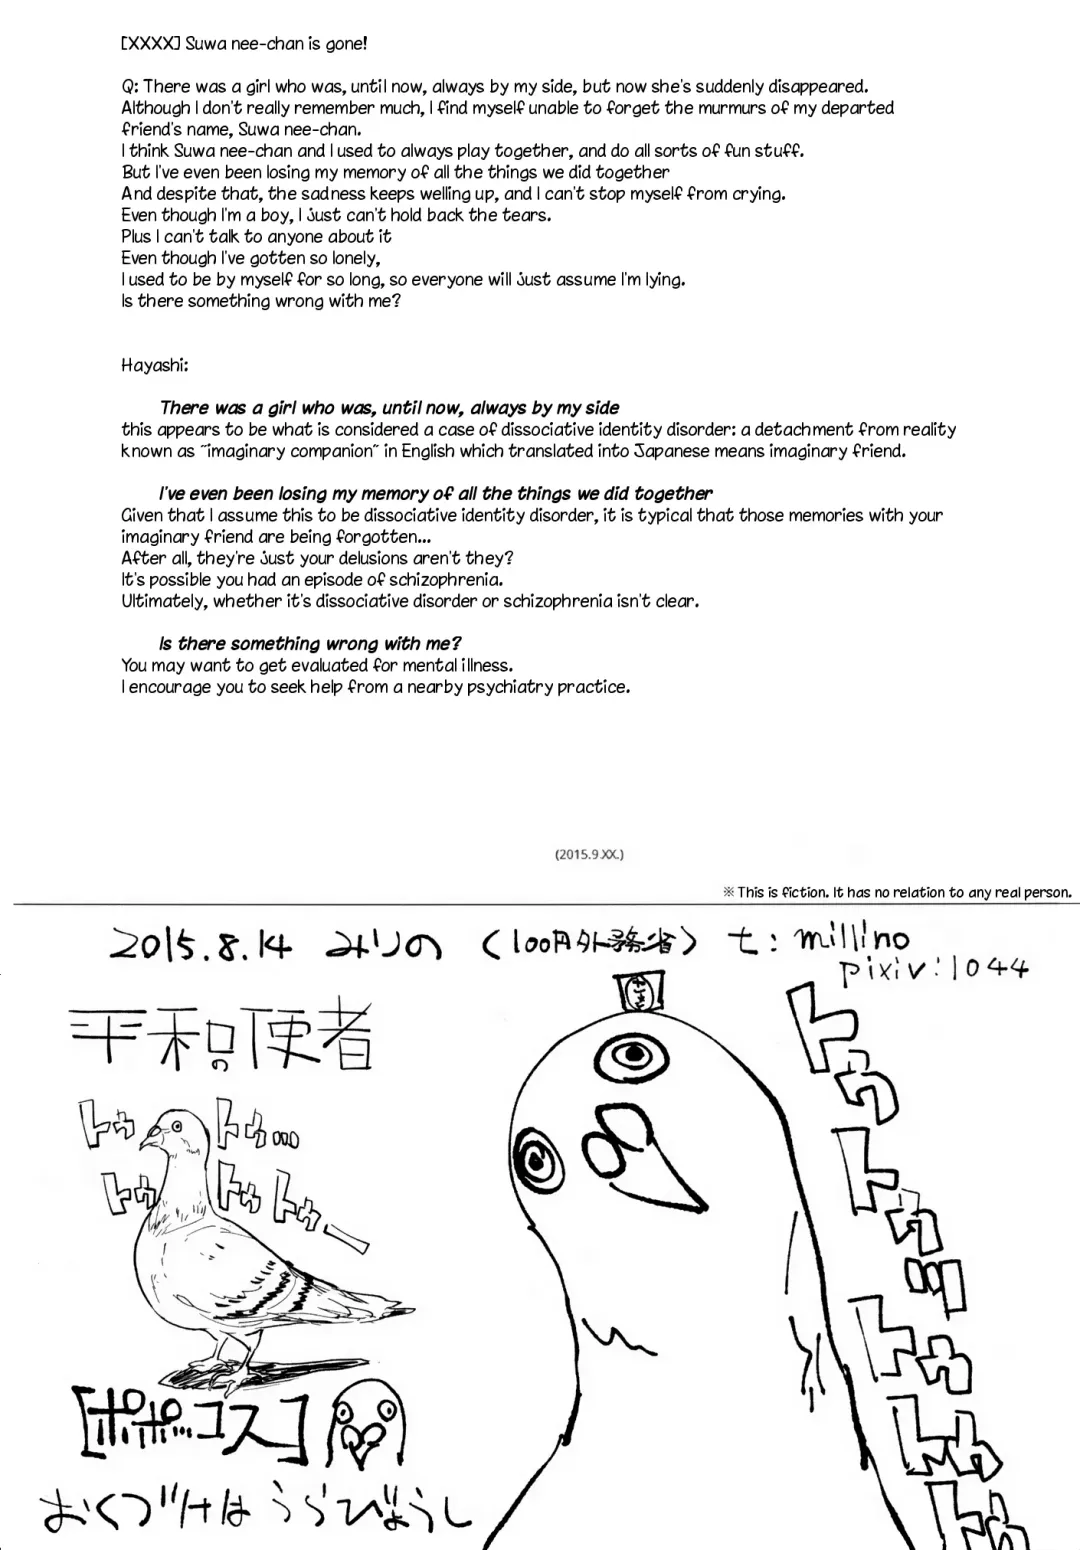 [XXXX] Suwa nee-chan is gone!
Q: There was a girl who was, until now, always by my side, but now she's suddenly disappeared.
Although I don't really remember much, I find myself unable to forget the murmurs of my departed
friend's name, Suwa nee-chan.
I think Suwa nee-chan and I used to always play together, and do all sorts of fun stuff.
But I've even been losing my memory of all the things we did together
And despite that, the sadness keeps welling up, and I can't stop myself from crying.
Even though I'm a boy, I just can't hold back the tears.
Plus I can't talk to anyone about it
Even though I've gotten so lonely,
I used to be by myself for so long, so everyone will just assume I'm lying.
Is there something wrong with me?
Hayashi:
There was a girl who was, until now, always by my side
this appears to be what is considered a case of dissociative identity disorder: a detachment from reality
known as ~imaginary companion~ in English which translated into Japanese means imaginary friend.
I've even been losing my memory of all the things we did together
Given that I assume this to be dissociative identity disorder, it is typical that those memories with your
imaginary friend are being forgotten...
After all, they're just your delusions aren't they?
It's possible you had an episode of schizophrenia.
Ultimately, whether it's dissociative disorder or schizophrenia isn't clear.
Is there something wrong with me?
You may want to get evaluated for mental illness.
I encourage you to seek help from a nearby psychiatry practice.
(2015.9.XX.)
※This is fiction. It has no relation to any real person.
2015.8.14 みりの (100円外務省) t: millino
pixiv:1044
平和の使者
トゥ トゥ...
トゥ トゥトゥー
[ポポ...コス]
おくづけはうらびょうし
トゥ
トゥ
ッ
トゥ
トゥ
トゥ